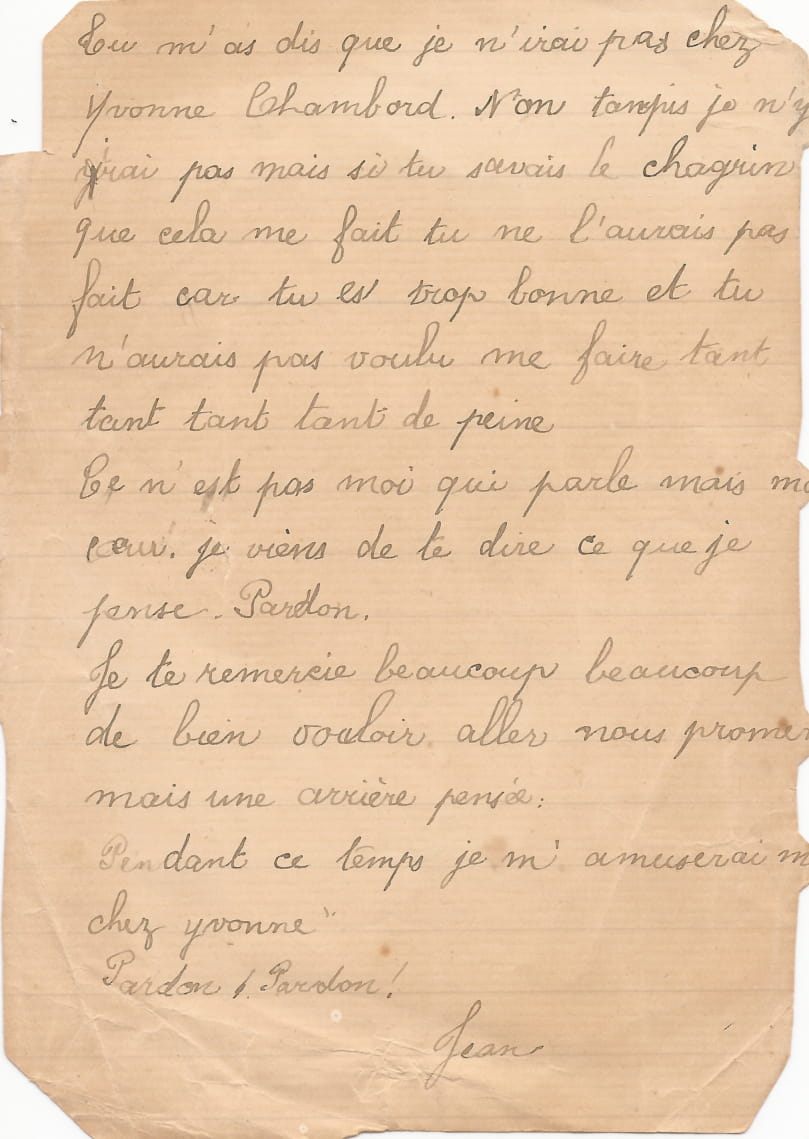 Tu m'as dis que je n'irai pas chez
Yvonne Chambord. Non tanpis je n'y
irai pas mais si tu savais le chagrin
que cela me fait tu ne l'aurais pas
fait car tu es trop bonne et tu
n'aurais pas voulu me faire tant
tant tant tant de peine
Ce n'est pas moi qui parle mais
cœur. je viens de te dire ce que je
pense. Pardon.
Je te remercie beaucoup beaucoup
de bien vouloir aller nous promen
mais une arrière pensée:
Pendant ce temps je m'amuserai
chez yvonne"
Pardon! Pardon!
Jean